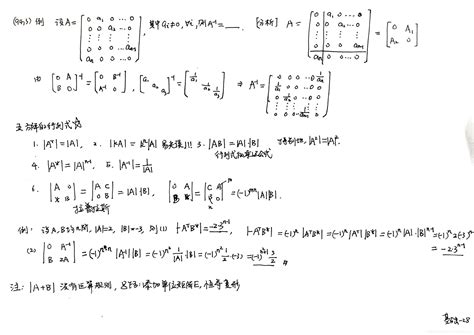 (94,3) 例 设A= [0 a₁ 0 … 0; 0 0 a₂ … 0; ⋮ ⋮ ⋮ ⋮; 0 0 0 … aₙ₋₁; aₙ 0 0 … 0], 其中 aᵢ≠0, ∀i, 则A⁻¹=____. [分析] A= [0 a₁ 0 … 0; 0 0 a₂ … 0; ⋮ ⋮ ⋮ ⋮; 0 0 0 … aₙ₋₁; aₙ 0 0 … 0] = [0 A₁; Aₙ 0]
由 [0 A; B 0]⁻¹ = [0 B⁻¹; A⁻¹ 0], [a₁ a₂ a₃]⁻¹ = [1/a₁ 1/a₂ 1/a₃] ⇒ A⁻¹= [0 0 0 … 0 1/aₙ; 1/a₁ 0 0 … 0 0; 0 1/a₂ 0 … 0 0; ⋮ ⋮ ⋮ ⋮; 0 0 0 … 1/aₙ₋₁ 0]
方阵的行列式
1. |Aᵀ|=|A|, 2. |kA|=kⁿ|A| !!! 3. |AB|=|A|·|B| 特别的, |Aᵏ|=|A|ᵏ.
行列式乘法公式
4. |A*|=|A|ⁿ⁻¹, 5. |A⁻¹|=1/|A|
6. |A 0; * B| = |A C; 0 B| = |A|·|B|, |0 A; B *| = |C A; B 0| = (-1)ᵐⁿ|A|·|B|.
拉普拉斯
例: 设A, B为n阶, |A|=2, |B|=-3, 则 (1) |-AᵀB*|=-2·3ⁿ⁻¹, |-AᵀB*|=(-1)ⁿ|AᵀB*|=(-1)ⁿ|Aᵀ||B*|=(-1)ⁿ|A|·|B|ⁿ⁻¹=(-1)ⁿ·2·(-3)ⁿ⁻¹
=-2·3ⁿ⁻¹
(2) |0 A⁻¹; B 2A| = (-1)ⁿˣⁿ|A⁻¹||B| = (-1)ⁿ² 1/|A|·|B| = (-1)ⁿ² 1/2·(-3) = (-1)ⁿ²⁺¹ 3/2 #
注: |A+B| 没有运算规则, 添加单位矩阵E, 恒等变形
基础-28